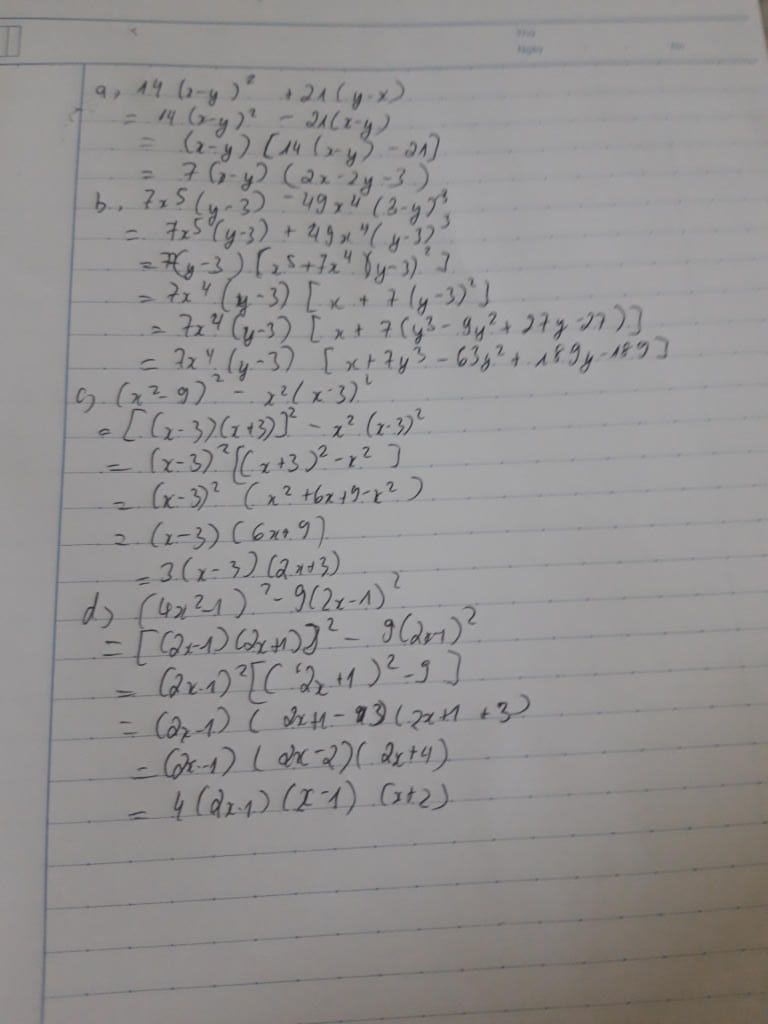 Thứ
Ngày
No
a, 14(x-y)² + 21(y-x)
= 14(x-y)² - 21(x-y)
= (x-y) [14(x-y) - 21]
= 7(x-y) (2x-2y-3)
b, 7x⁵(y-3) - 49x⁴(3-y)³
= 7x⁵(y-3) + 49x⁴(y-3)³
= 7(y-3) [x⁵+7x⁴(y-3)²]
= 7x⁴(y-3) [x + 7(y-3)²]
= 7x⁴(y-3) [x + 7(y³ - 9y² + 27y - 27)]
= 7x⁴(y-3) [x+7y³ - 63y² + 189y-189]
c, (x²-9)² - x²(x-3)²
= [(x-3)(x+3)]² - x²(x-3)²
= (x-3)² [(x+3)² - x²]
= (x-3)² (x²+6x+9-x²)
= (x-3) (6x+9)
= 3(x-3) (2x+3)
d, (4x²-1)² - 9(2x-1)²
= [(2x-1)(2x+1)]² - 9(2x-1)²
= (2x-1)² [(2x+1)² - 9]
= (2x-1) (2x+1-3) (2x+1+3)
= (2x-1) (2x-2)(2x+4)
= 4(2x-1) (x-1) (x+2)